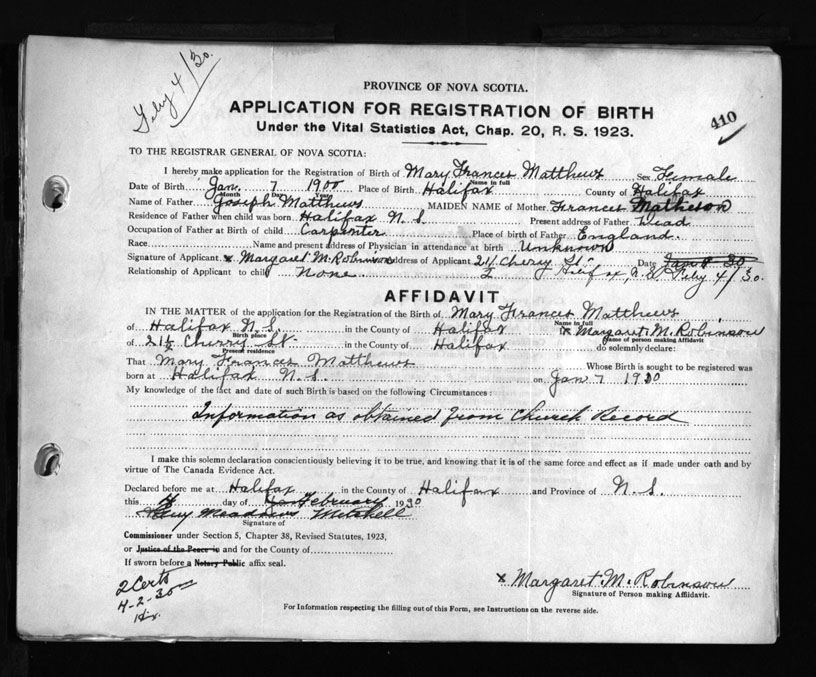 Feby 4/30.
PROVINCE OF NOVA SCOTIA.
APPLICATION FOR REGISTRATION OF BIRTH
410
Under the Vital Statistics Act, Chap. 20, R. S. 1923.
TO THE REGISTRAR GENERAL OF NOVA SCOTIA:
I hereby make application for the Registration of Birth of Mary Frances Matthews Sex Female
Name in full
Date of Birth Jan. 7 1900 Place of Birth Halifax County of Halifax
Month Day Year
Name of Father Joseph Matthews MAIDEN NAME of Mother Frances Matheson
Residence of Father when child was born Halifax N S Present address of Father Dead
Occupation of Father at Birth of child Carpenter Place of birth of Father England.
Race Name and present address of Physician in attendance at birth Unknown
Signature of Applicant x Margaret M. Robinson Address of Applicant 21½ Cherry St. Date
Relationship of Applicant to child None Halifax, N.S. Feby 4/30.
AFFIDAVIT
IN THE MATTER of the application for the Registration of the Birth of Mary Frances Matthews
Name in full
of Halifax N.S. in the County of Halifax x Margaret M. Robinson
Birth place Name of person making Affidavit
of 21½ Cherry St. in the County of Halifax do solemnly declare:
Present residence
That Mary Frances Matthews Whose Birth is sought to be registered was
born at Halifax N. S. on Jan 7 1900
My knowledge of the fact and date of such Birth is based on the following Circumstances:
Information as obtained from Church Record
I make this solemn declaration conscientiously believing it to be true, and knowing that it is of the same force and effect as if made under oath and by
virtue of The Canada Evidence Act.
Declared before me at Halifax in the County of Halifax and Province of N. S.
this 4 day of February 1930
Mitchell
Signature of
Commissioner under Section 5, Chapter 38, Revised Statutes, 1923,
or Justice of the Peace in and for the County of
If sworn before a Notary Public affix seal.
x Margaret M. Robinson
Signature of Person making Affidavit.
2 Certs
4-2-30
For Information respecting the filling out of this Form, see Instructions on the reverse side.